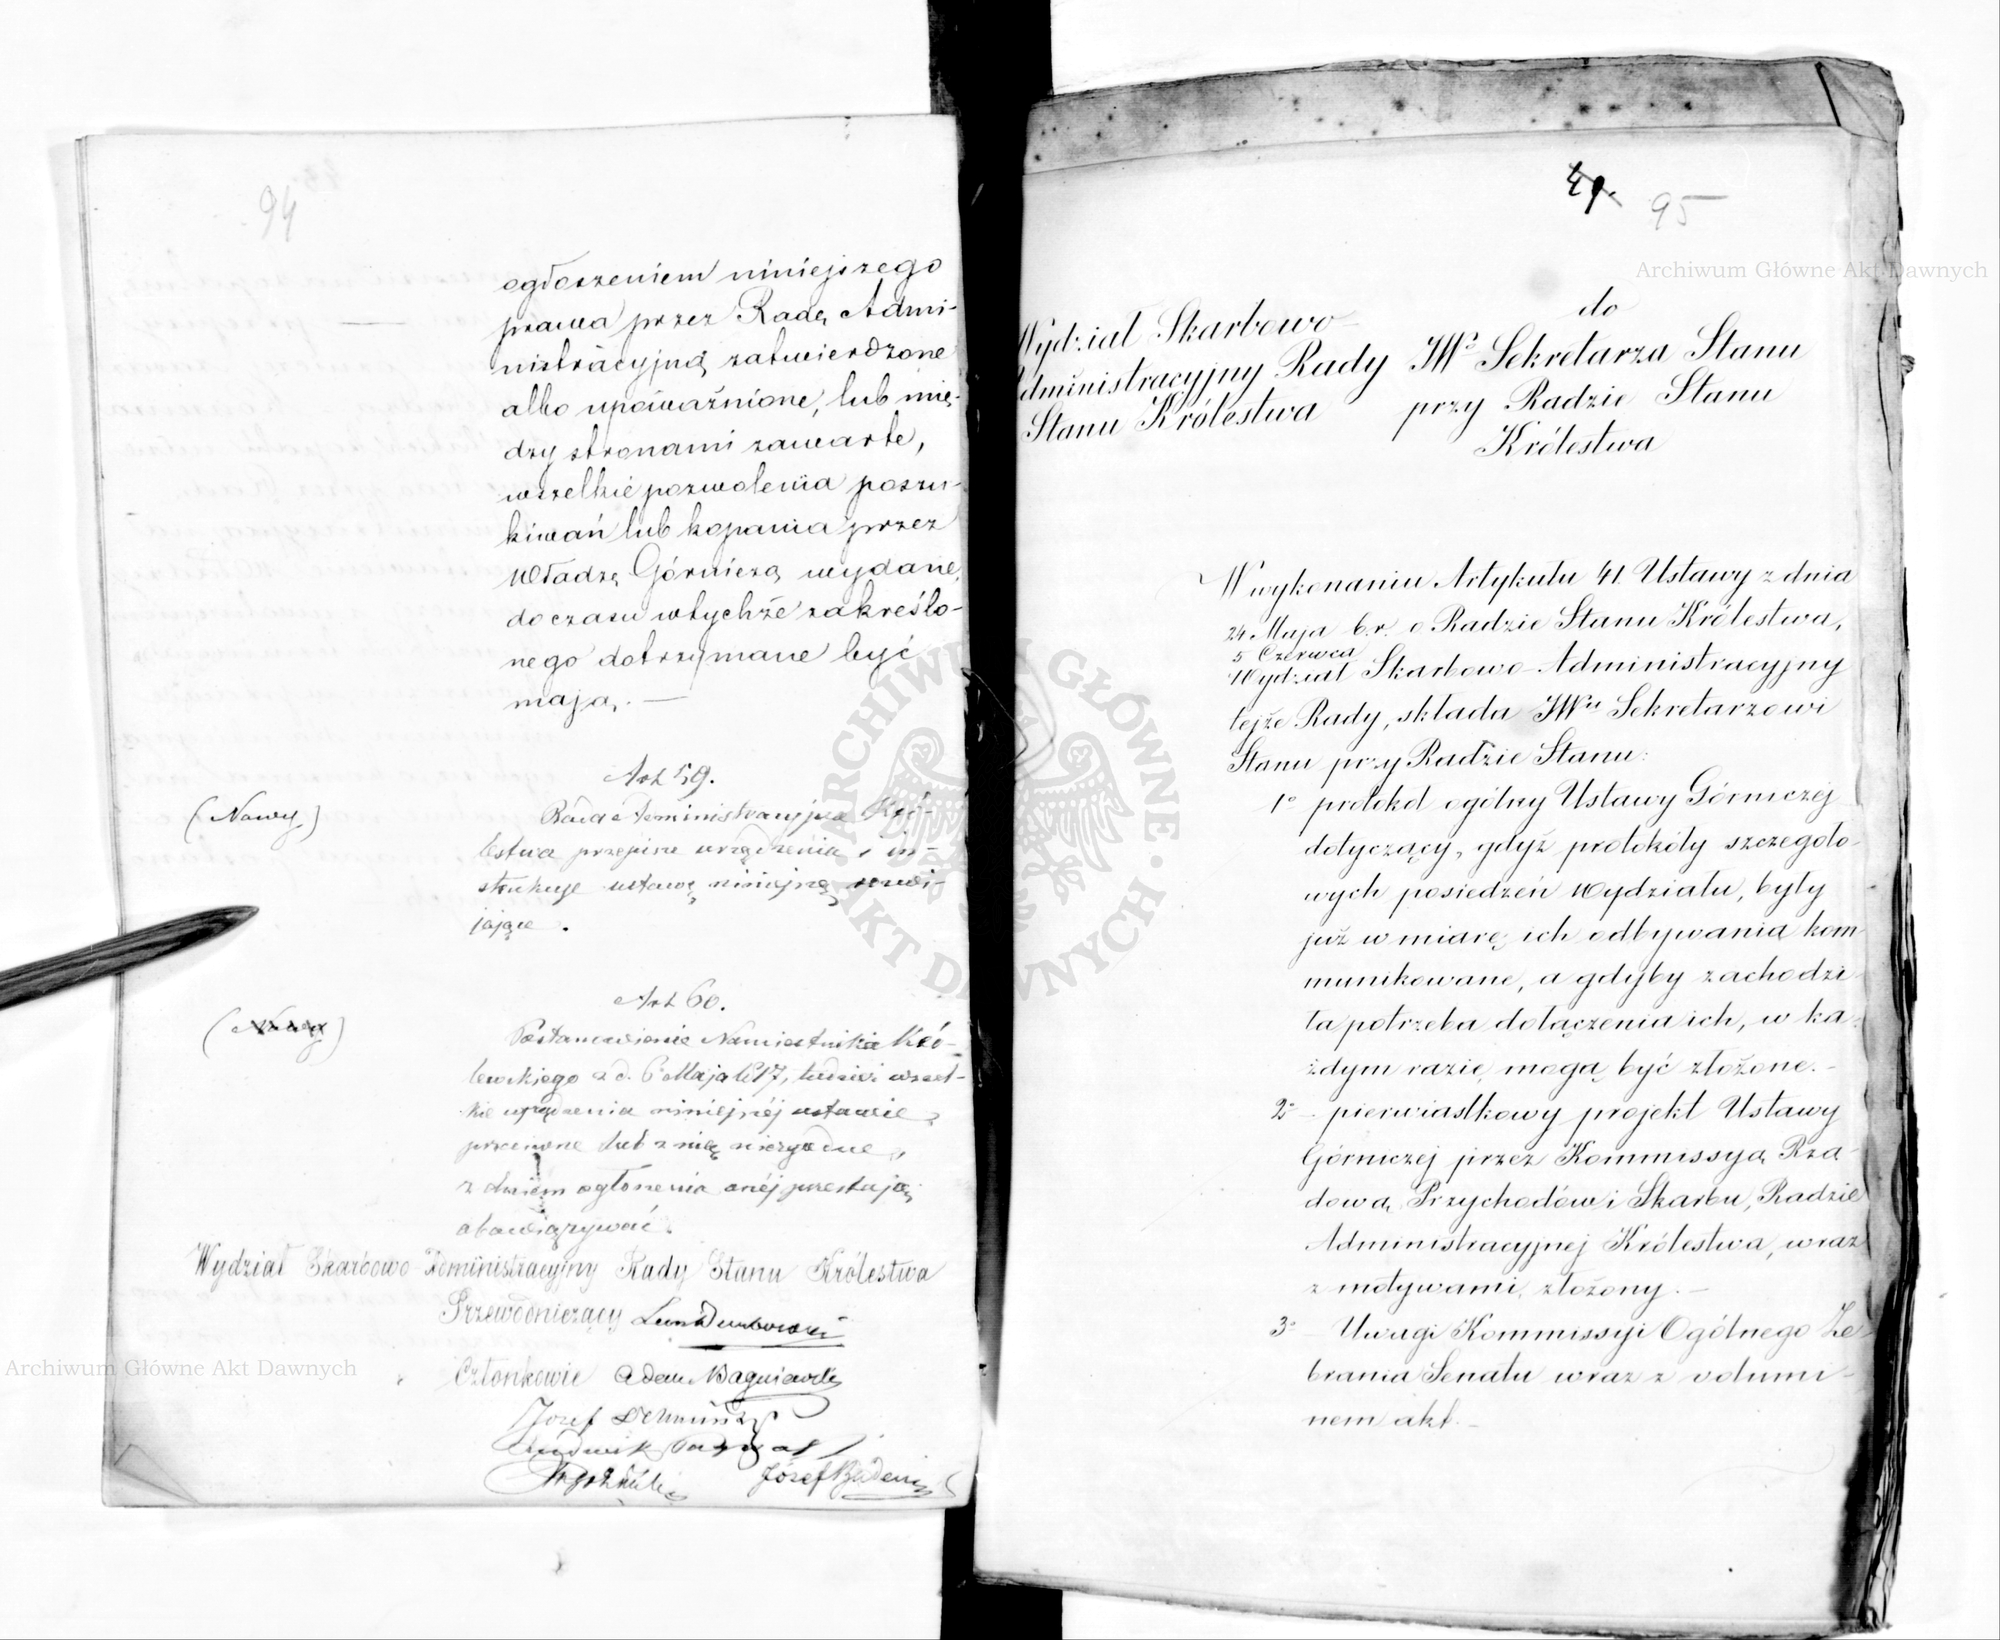 94
ogłoszeniem niniejszego
prawa przez Radę Admi-
nistracyjną zatwierdzone
albo upoważnione, lub mię-
dzy stronami zawarte,
wszelkie pozwolenia poszu-
kiwań lub kopania przez
Władzę Górniczą wydane,
do czasu w tychże zakreślo-
nego dotrzymane być
mają. —
Art 59.
(Nowy)
Rada Administracyjna Kró-
lestwa przepisze urządzenia i in-
strukcje ustawę niniejszą rozwi-
jające.
Art 60.
(Nowy)
Postanowienie Namiestnika Kró-
lewskiego z d. 6 Maja 1817, tudzież wszel-
kie urządzenia niniejszéj ustawie
przeciwne lub z nią niezgodne,
z dniem ogłoszenia onéj przestają
obowiązywać.
Wydział Skarbowo Administracyjny Rady Stanu Królestwa
Przewodniczący Leon Dembowski
Członkowie Adam Bagniewski
Józef
Ludwik
Józef Badeni
49. 95
Wydział Skarbowo
Administracyjny Rady
Stanu Królestwa
do
JWo Sekretarza Stanu
przy Radzie Stanu
Królestwa
W wykonaniu Artykułu 41. Ustawy z dnia
24 Maja b.r. o Radzie Stanu Królestwa,
5 Czerwca
Wydział Skarbowo-Administracyjny
tejże Rady, składa JWu Sekretarzowi
Stanu przy Radzie Stanu:
1o protokół ogólny Ustawy Górniczej
dotyczący, gdyż protokóły szczegóło-
wych posiedzeń Wydziału, były
już w miarę ich odbywania kom
munikowane, a gdyby zachodzi-
ła potrzeba dołączenia ich, w ka-
żdym razie mogą być złożone. -
2o - pierwiastkowy projekt Ustawy
Górniczej przez Kommissyą Rzą-
dową Przychodów i Skarbu, Radzie
Administracyjnej Królestwa, wraz
z motywami, złożony. -
3o - Uwagi Kommissyi Ogólnego Ze-
brania Senatu wraz z volumi-
nem akt. -
Archiwum Główne Akt Dawnych
ARCHIWUM GŁÓWNE AKT DAWNYCH
Archiwum Główne Akt Dawnych